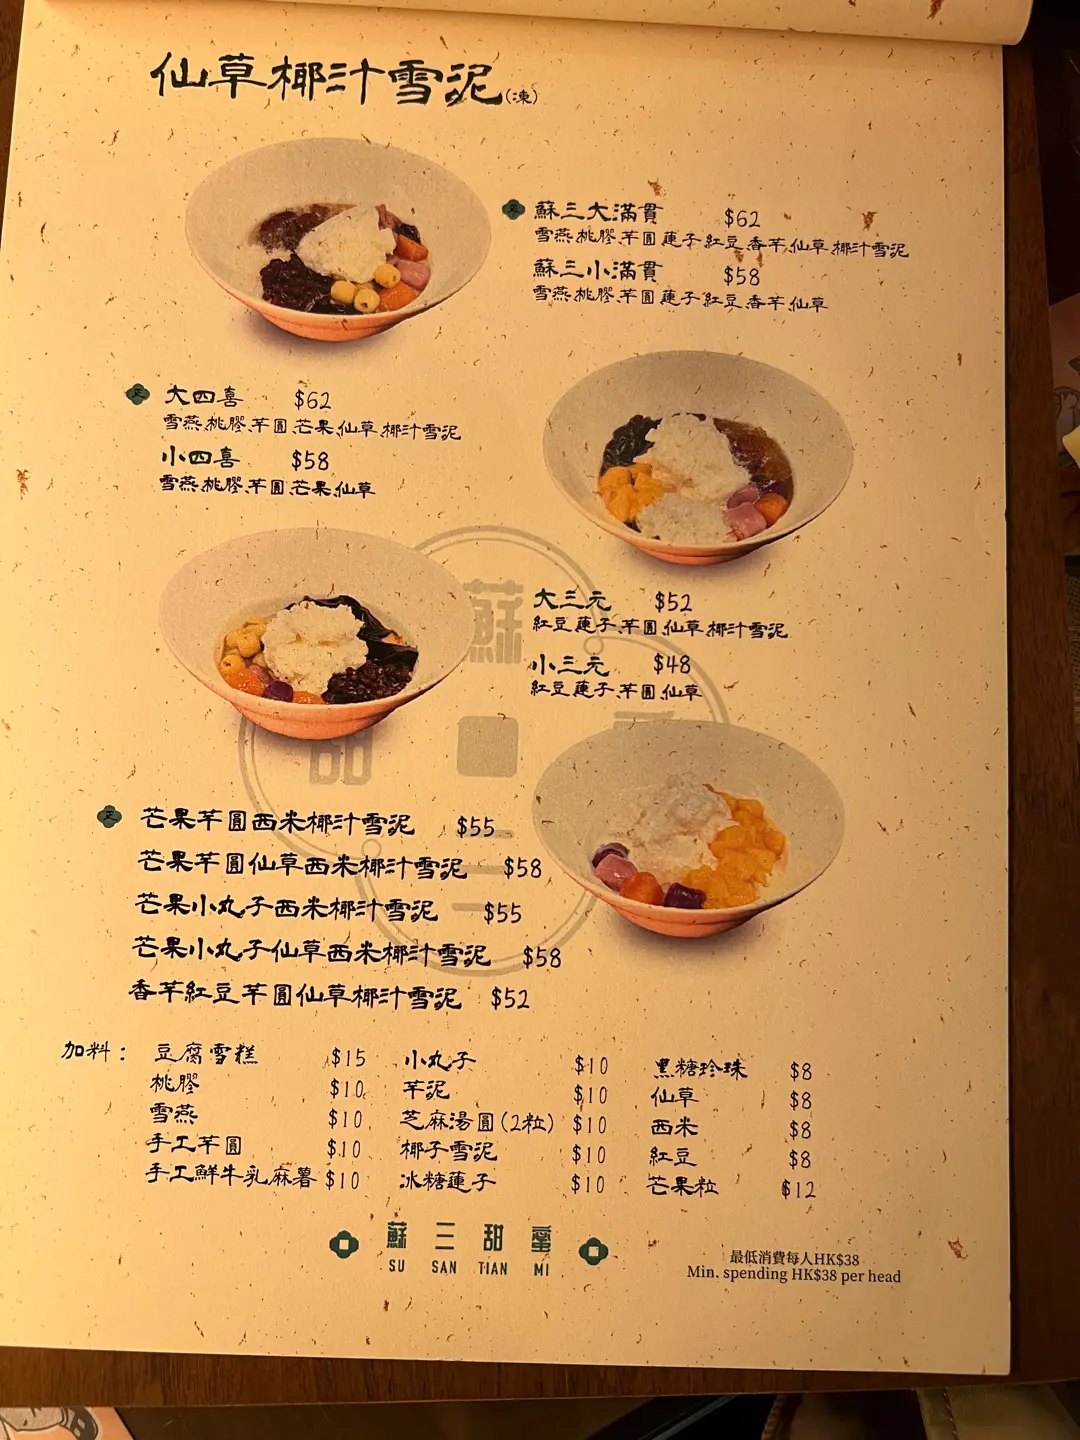 仙草椰汁雪泥(凍)
蘇三大滿貫 $62
雪燕、桃膠、芋圓、蓮子、紅豆、香芋、仙草、椰汁雪泥
蘇三小滿貫 $58
雪燕、桃膠、芋圓、蓮子、紅豆、香芋、仙草
大四喜 $62
雪燕、桃膠、芋圓、芒果、仙草、椰汁雪泥
小四喜 $58
雪燕、桃膠、芋圓、芒果、仙草
大三元 $52
紅豆、蓮子、芋圓、仙草、椰汁雪泥
小三元 $48
紅豆、蓮子、芋圓、仙草
芒果芋圓西米椰汁雪泥 $55
芒果芋圓仙草西米椰汁雪泥 $58
芒果小丸子西米椰汁雪泥 $55
芒果小丸子仙草西米椰汁雪泥 $58
香芋紅豆芋圓仙草椰汁雪泥 $52
加料： 豆腐雪糕 $15 小丸子 $10 黑糖珍珠 $8
桃膠 $10 芋泥 $10 仙草 $8
雪燕 $10 芝麻湯圓(2粒) $10 西米 $8
手工芋圓 $10 椰子雪泥 $10 紅豆 $8
手工鮮牛乳麻薯 $10 冰糖蓮子 $10 芒果粒 $12
蘇三甜蜜
SU SAN TIAN MI
最低消費每人HK$38
Min. spending HK$38 per head